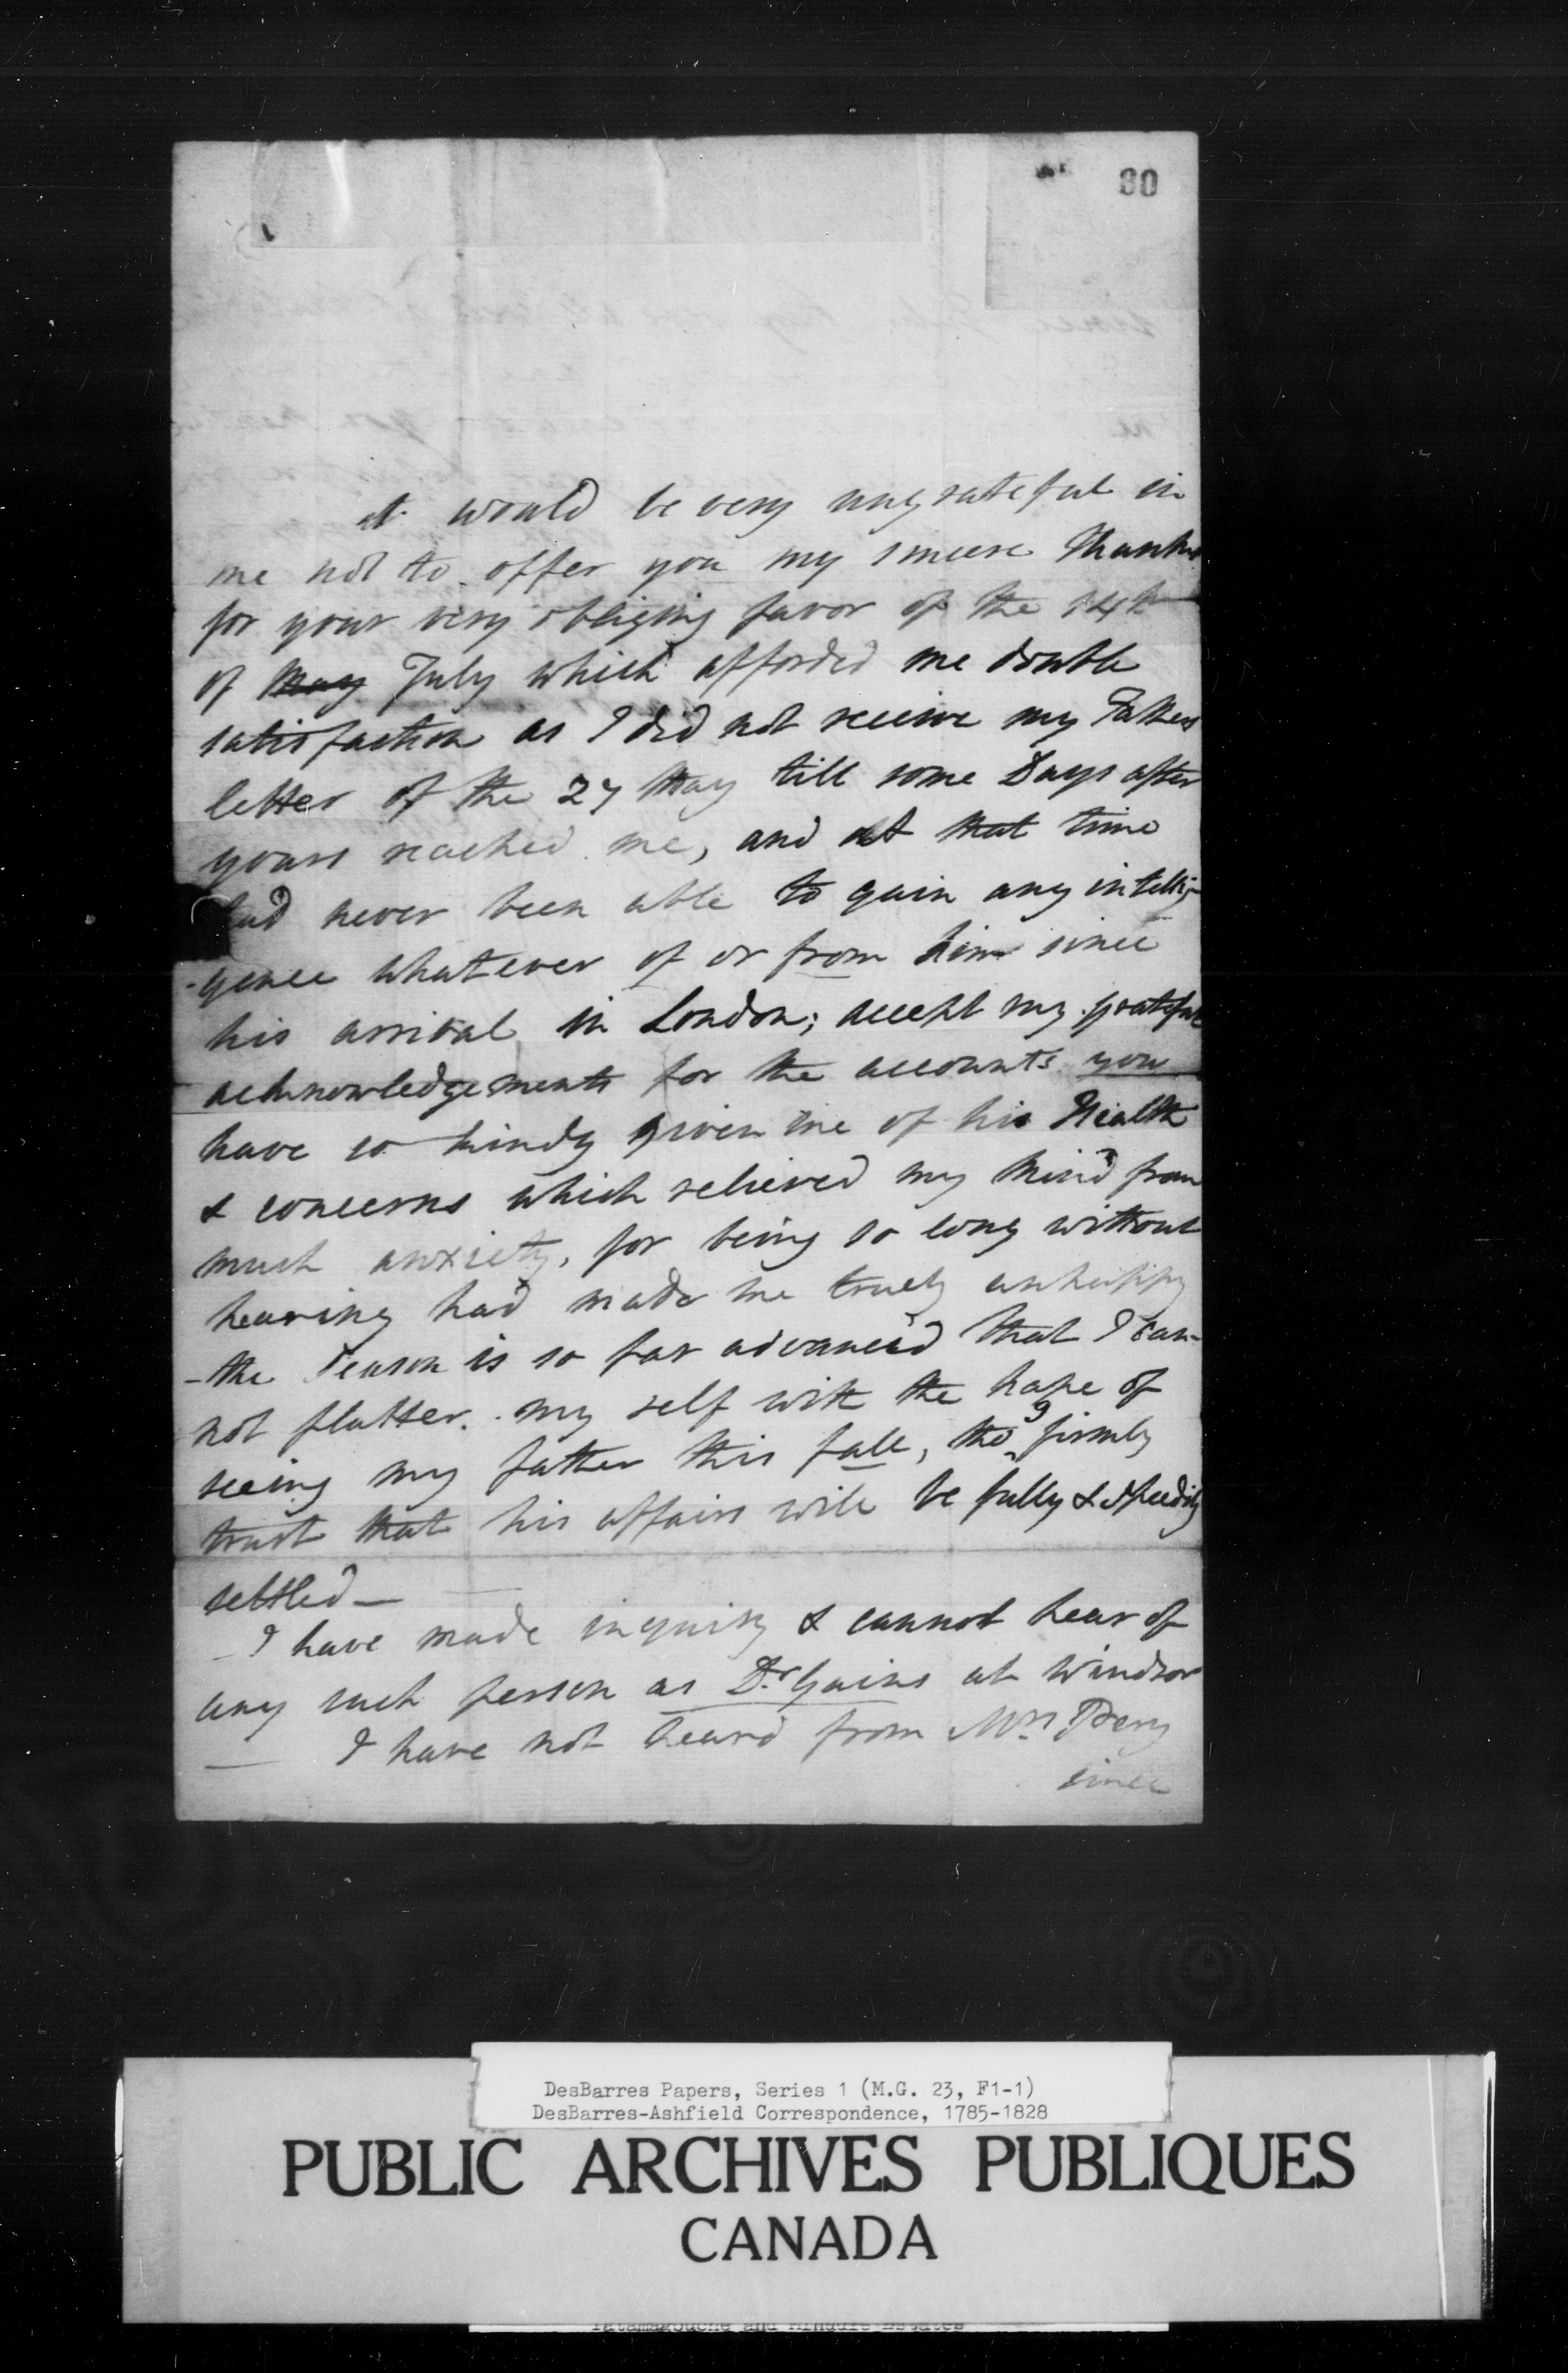 80
it would be very ungrateful in
me not to offer you my sincere thanks
for your very obliging favor of the 14th
of May July which afforded me double
satisfaction as I did not receive my Fathers
letter of the 27 May till some Days after
yours reached me, and at that time
had never been able to gain any intelli-
-gence whatever of or from him since
his arrival in London; accept my grateful
acknowledgements for the accounts you
have so kindly given me of his Health
& concerns which relieved my Mind from
much anxiety, for being so long without
hearing had made me truely unhappy
-the Season is so far advanced that I can-
not flatter my self with the hope of
seeing my father this fall, tho I firmly
trust that his affairs will be fully & speedily
settled—
- I have made inquiry & cannot hear of
any such person as Dr. Gains at Windsor
— I have not heard from Mrs. Pery
since
DesBarres Papers, Series 1 (M.G. 23, F1-1)
DesBarres-Ashfield Correspondence, 1785-1828
PUBLIC ARCHIVES PUBLIQUES
CANADA
Tatamagouche and Minudie Estates